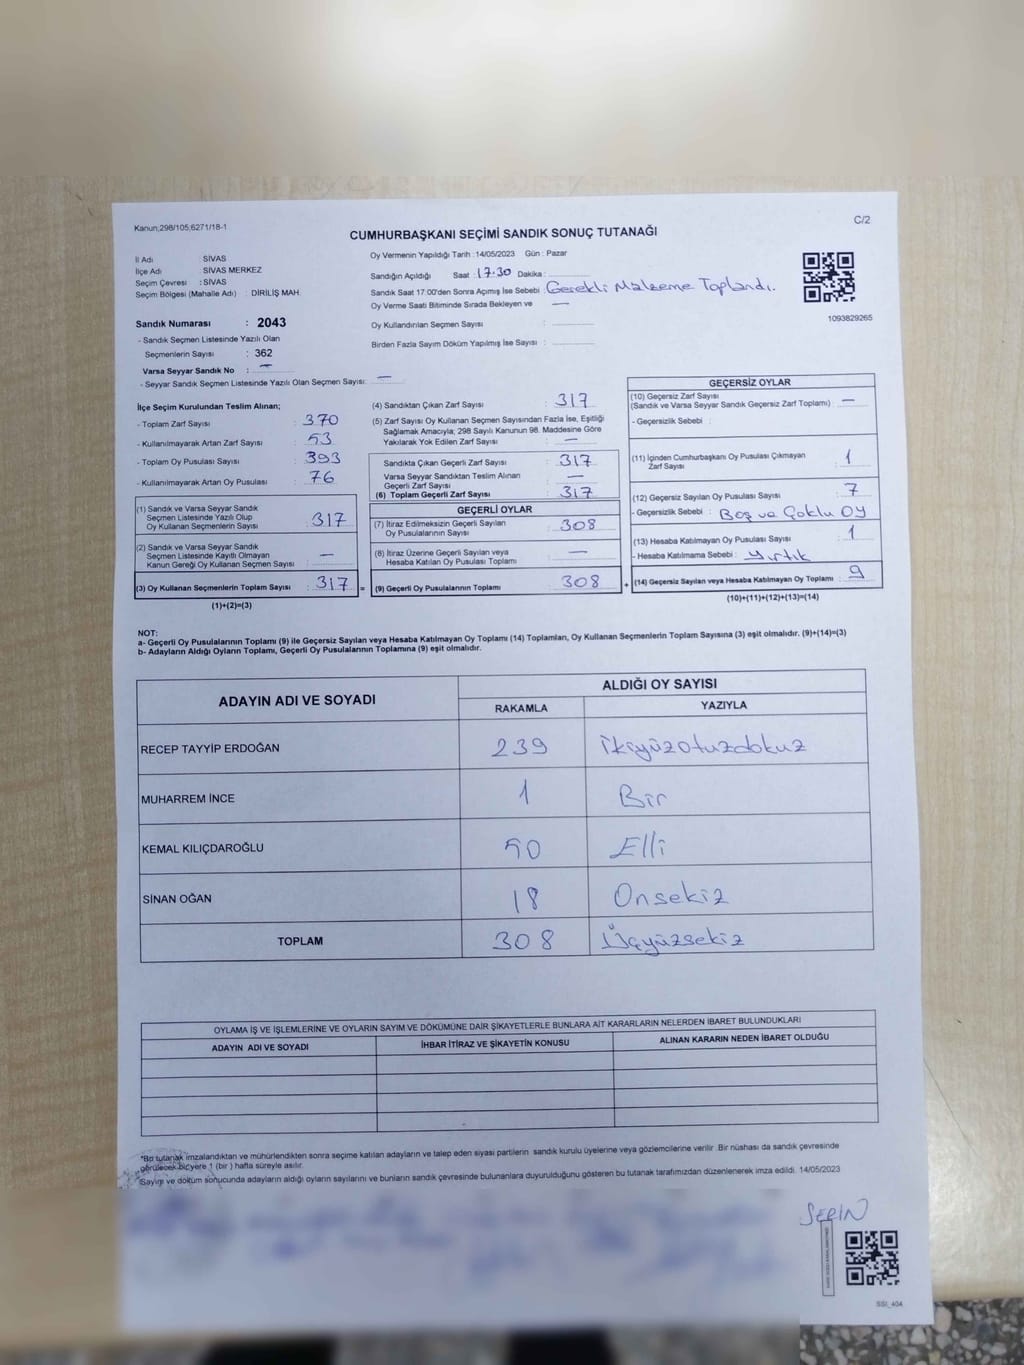 Kanun;298/105;6271/18-1
C/2
CUMHURBAŞKANI SEÇİMİ SANDIK SONUÇ TUTANAĞI
İl Adı SİVAS
İlçe Adı SİVAS MERKEZ
Seçim Çevresi : SİVAS
Seçim Bölgesi (Mahalle Adı) : DİRİLİŞ MAH.
Oy Vermenin Yapıldığı Tarih : 14/05/2023 Gün : Pazar
Sandığın Açıldığı Saat : 17.30 Dakika :
Sandık Saat 17:00'den Sonra Açımış İse Sebebi : Gerekli Malzeme Toplandı.
Oy Verme Saati Bitiminde Sırada Bekleyen ve —
Oy Kullandırılan Seçmen Sayısı :
Birden Fazla Sayım Döküm Yapılmış İse Sayısı :
1093829265
Sandık Numarası : 2043
- Sandık Seçmen Listesinde Yazılı Olan
Seçmenlerin Sayısı : 362
Varsa Seyyar Sandık No : —
- Seyyar Sandık Seçmen Listesinde Yazılı Olan Seçmen Sayısı: —
İlçe Seçim Kurulundan Teslim Alınan;
- Toplam Zarf Sayısı : 370
- Kullanılmayarak Artan Zarf Sayısı : 53
- Toplam Oy Pusulası Sayısı : 393
- Kullanılmayarak Artan Oy Pusulası : 76
(1) Sandık ve Varsa Seyyar Sandık
Seçmen Listesinde Yazılı Olup
Oy Kullanan Seçmenlerin Sayısı : 317
(2) Sandık ve Varsa Seyyar Sandık
Seçmen Listesinde Kayıtlı Olmayan
Kanun Gereği Oy Kullanan Seçmen Sayısı : —
(3) Oy Kullanan Seçmenlerin Toplam Sayısı : 317 =
(1)+(2)=(3)
(4) Sandıktan Çıkan Zarf Sayısı : 317
(5) Zarf Sayısı Oy Kullanan Seçmen Sayısından Fazla İse, Eşitliği
Sağlamak Amacıyla; 298 Sayılı Kanunun 98. Maddesine Göre
Yakılarak Yok Edilen Zarf Sayısı : —
Sandıkta Çıkan Geçerli Zarf Sayısı : 317
Varsa Seyyar Sandıktan Teslim Alınan
Geçerli Zarf Sayısı : —
(6) Toplam Geçerli Zarf Sayısı : 317
GEÇERLİ OYLAR
(7) İtiraz Edilmeksizin Geçerli Sayılan
Oy Pusulalarının Sayısı : 308
(8) İtiraz Üzerine Geçerli Sayılan veya
Hesaba Katılan Oy Pusulası Toplamı : —
(9) Geçerli Oy Pusulalarının Toplamı : 308 +
GEÇERSİZ OYLAR
(10) Geçersiz Zarf Sayısı
(Sandık ve Varsa Seyyar Sandık Geçersiz Zarf Toplamı) : —
- Geçersizlik Sebebi :
(11) İçinden Cumhurbaşkanı Oy Pusulası Çıkmayan
Zarf Sayısı : 1
(12) Geçersiz Sayılan Oy Pusulası Sayısı : 7
- Geçersizlik Sebebi : Boş ve Çoklu OY
(13) Hesaba Katılmayan Oy Pusulası Sayısı : 1
- Hesaba Katılmama Sebebi : Yırtık
(14) Geçersiz Sayılan veya Hesaba Katılmayan Oy Toplamı : 9
(10)+(11)+(12)+(13)=(14)
NOT:
a- Geçerli Oy Pusulalarının Toplamı (9) ile Geçersiz Sayılan veya Hesaba Katılmayan Oy Toplamı (14) Toplamları, Oy Kullanan Seçmenlerin Toplam Sayısına (3) eşit olmalıdır. (9)+(14)=(3)
b- Adayların Aldığı Oyların Toplamı, Geçerli Oy Pusulalarının Toplamına (9) eşit olmalıdır.
ADAYIN ADI VE SOYADI
ALDIĞI OY SAYISI
RAKAMLA YAZIYLA
RECEP TAYYİP ERDOĞAN 239 İkiyüzotuzdokuz
MUHARREM İNCE 1 Bir
KEMAL KILIÇDAROĞLU 50 Elli
SİNAN OĞAN 18 Onsekiz
TOPLAM 308 Üçyüzsekiz
OYLAMA İŞ VE İŞLEMLERİNE VE OYLARIN SAYIM VE DÖKÜMÜNE DAİR ŞİKAYETLERLE BUNLARA AİT KARARLARIN NELERDEN İBARET BULUNDUKLARI
ADAYIN ADI VE SOYADI İHBAR İTİRAZ VE ŞİKAYETİN KONUSU ALINAN KARARIN NEDEN İBARET OLDUĞU
*Bu tutanak imzalandıktan ve mühürlendikten sonra seçime katılan adayların ve talep eden siyasi partilerin sandık kurulu üyelerine veya gözlemcilerine verilir. Bir nüshası da sandık çevresinde
görülecek bir yere 1 (bir) hafta süreyle asılır.
Sayım ve döküm sonucunda adayların aldığı oyların sayılarını ve bunların sandık çevresinde bulunanlara duyurulduğunu gösteren bu tutanak tarafımızdan düzenlenerek imza edildi. 14/05/2023
SERİN
SSI_404